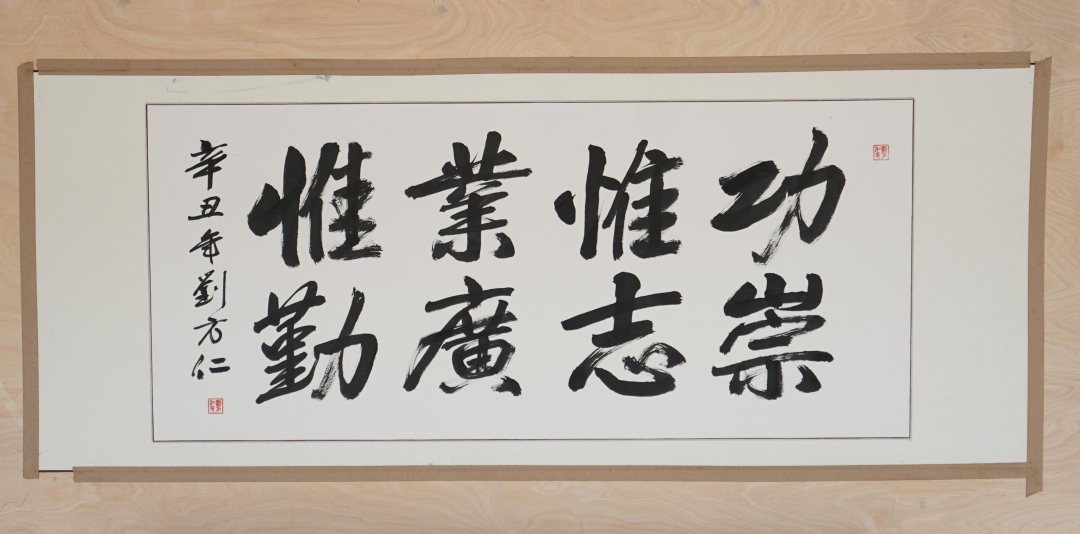 功崇
惟志
業廣
惟勤
辛丑年劉方仁